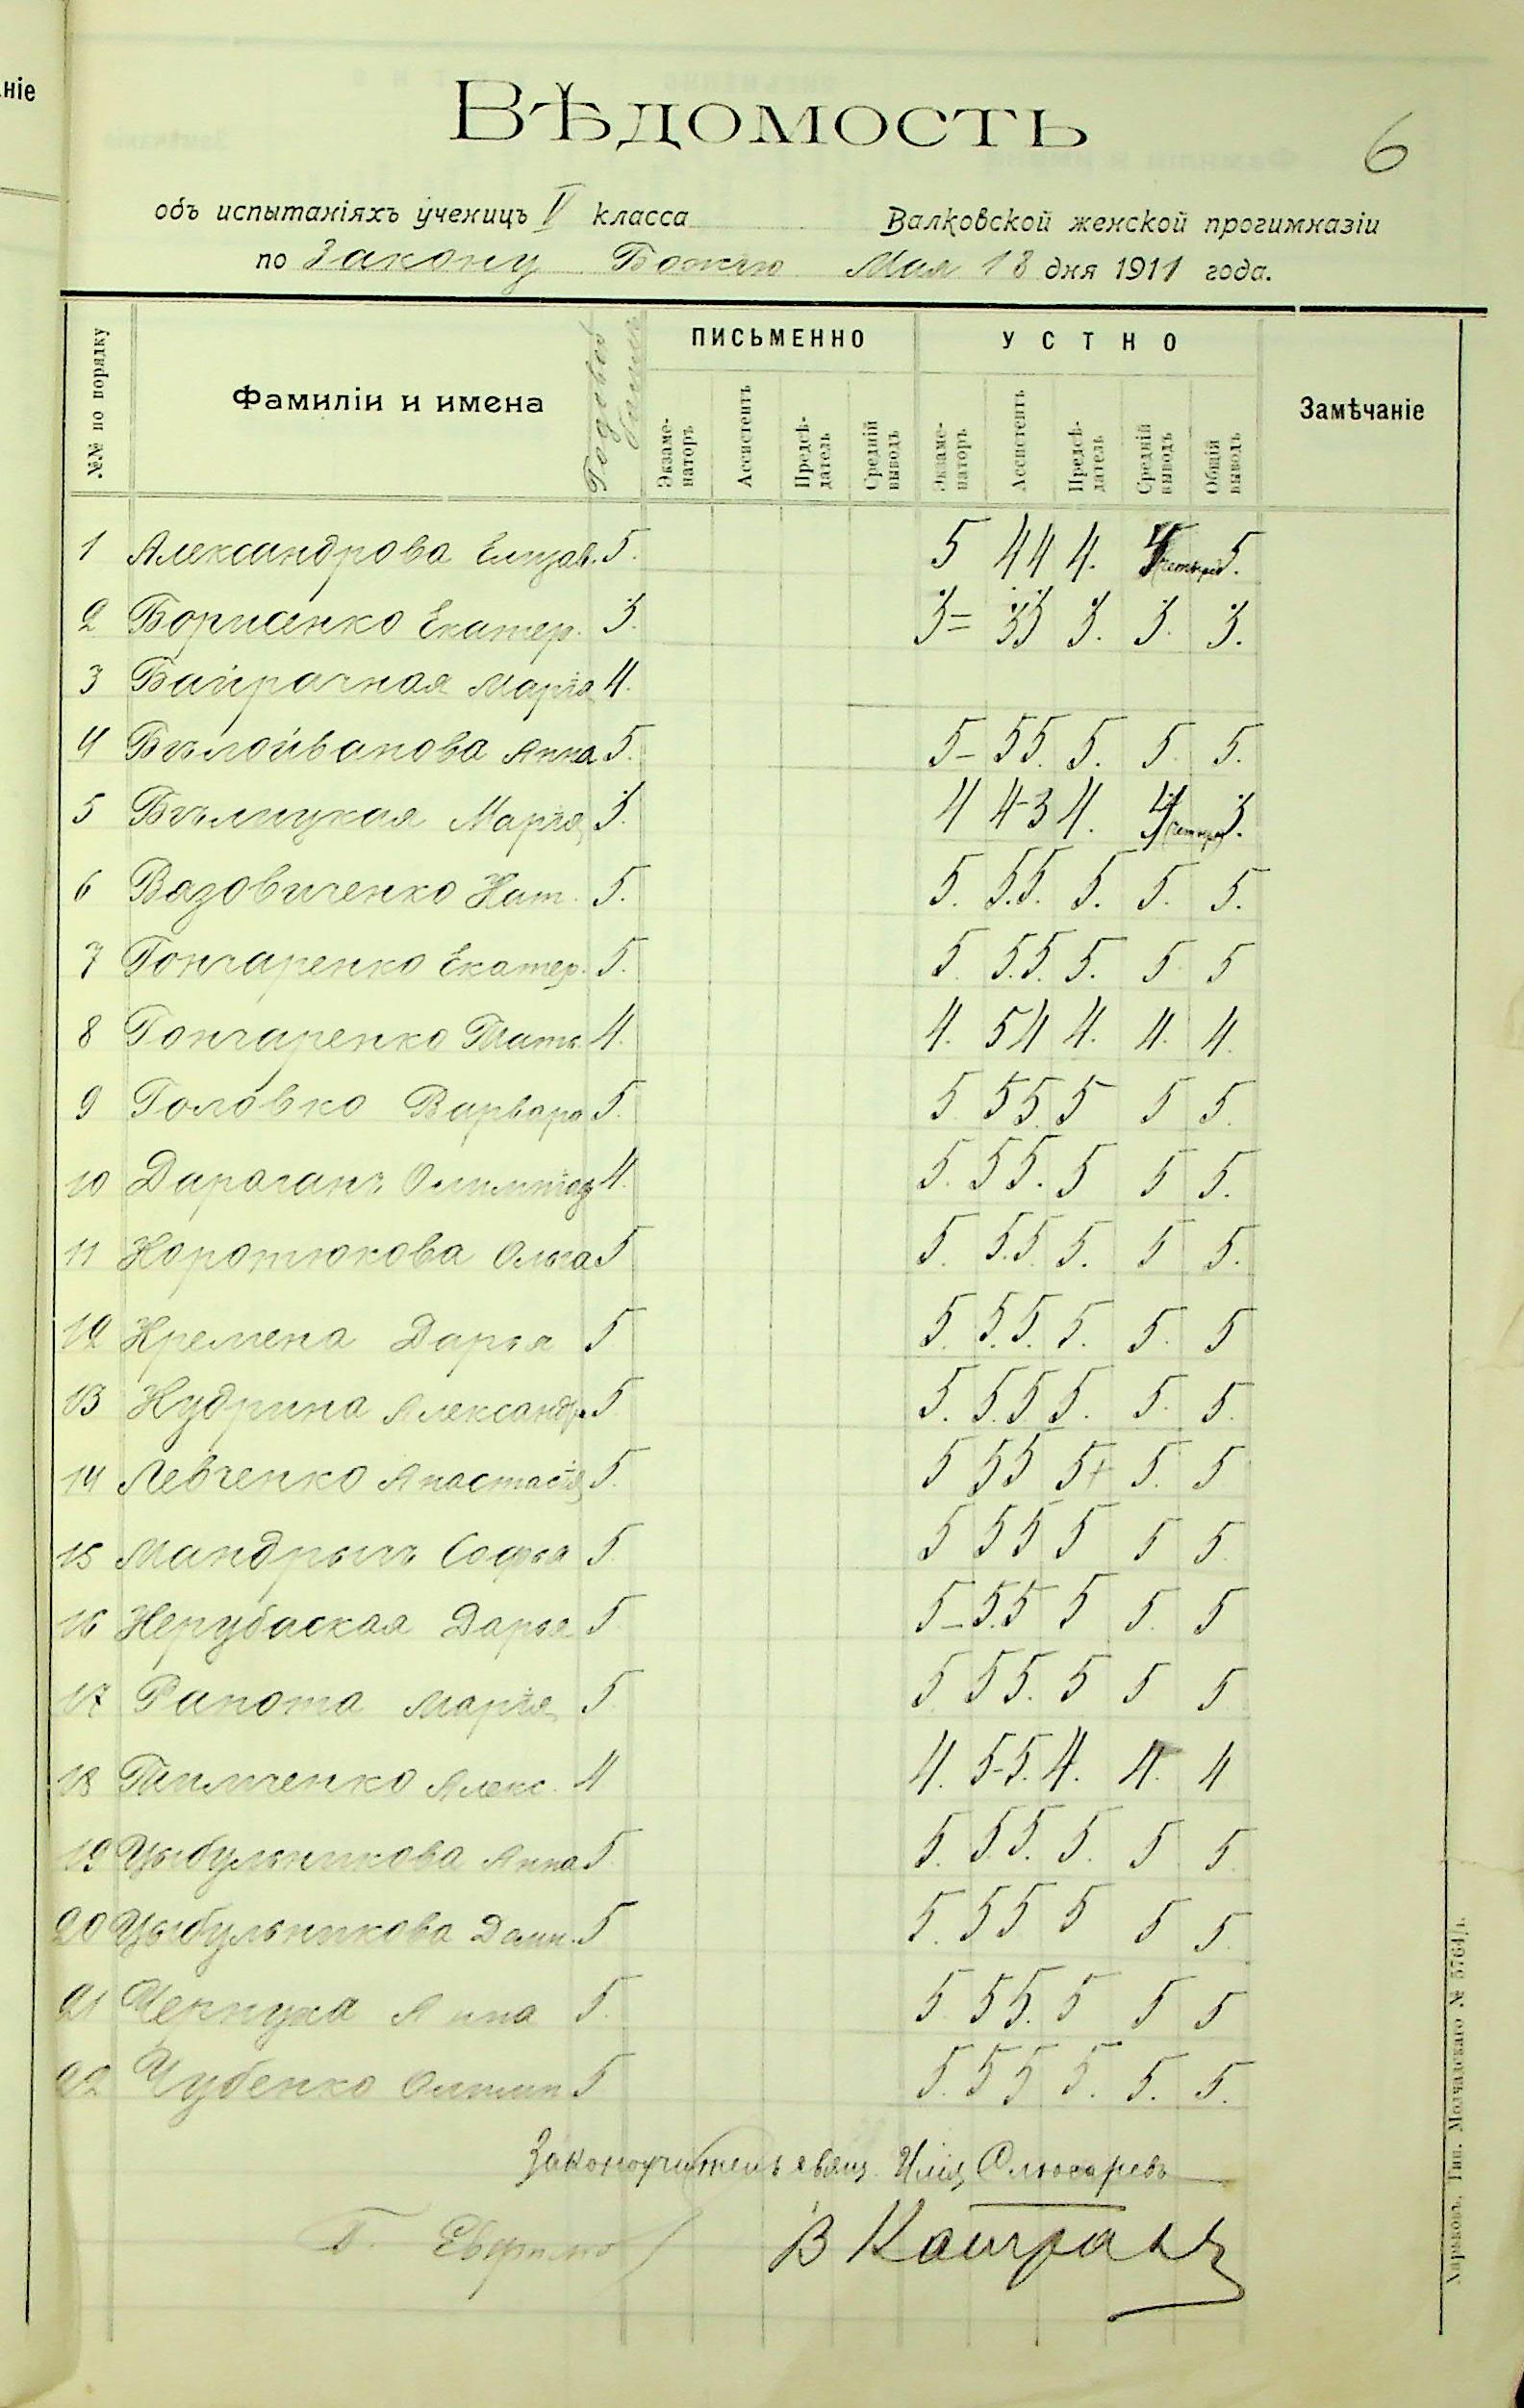 ніе
Вѣдомость
6
объ испытаніяхъ ученицъ V класса Валковской женской прогимназіи
по Закону Божію Мая 18 дня 1911 года.
№№ по порядку
Фамиліи и имена
Годовой баллъ
ПИСЬМЕННО
УСТНО
Замѣчаніе
Экзаме-наторъ Ассистентъ Предсѣ-датель Средній выводъ Экзаме-наторъ Ассистентъ Предсѣ-датель Средній выводъ Общій выводъ
1 Александрова Елизав. 5. 5 4 4 4. 4 (четыре) 5.
2 Борисенко Екатер. 3. 3= 3 3 3. 3. 3.
3 Байрачная Марія 4.
4 Бѣлойванова Анна 5. 5– 5 5. 5. 5. 5.
5 Бѣлицкая Марія 3. 4 4-3 4. 4 (четыре) 3.
6 Вазовиченко Нат. 5. 5. 5.5. 5. 5. 5.
7 Гончаренко Екатер. 5. 5. 5.5. 5. 5. 5
8 Гончаренко Тать. 4. 4. 5 4 4. 4. 4.
9 Головко Варвара 5. 5. 5 5. 5 5 5.
10 Дараганъ Олимпіад 4. 5. 5 5. 5 5 5.
11 Коротюкова Ольга 5 5. 5.5. 5. 5 5.
12 Кремена Дарья 5 5. 5.5. 5. 5. 5
13 Кудрина Александр. 5 5. 5.5 5. 5. 5.
14 Левченко Анастасія 5. 5 5 5 5+ 5. 5
15 Мандрычъ Софья 5. 5 5 5 5 5 5.
16 Нерубаская Дарья 5 5– 5.5 5 5. 5
17 Рапота Марія 5. 5 5 5. 5 5 5
18 Тимченко Алекс. 4 4. 5-5. 4. 4. 4
19 Цыбульникова Анна 5. 5. 5 5. 5. 5 5.
20 Цыбульникова Домн. 5 5. 5 5 5 5 5.
21 Чекнуха Анна 5. 5 5 5. 5 5 5
22 Чубенко Олимп 5 5. 5 5 5. 5. 5.
Законоучитель свящ. Илія Слюсаревъ
Харьковъ, Тип. Молчадскаго № 5764/1.